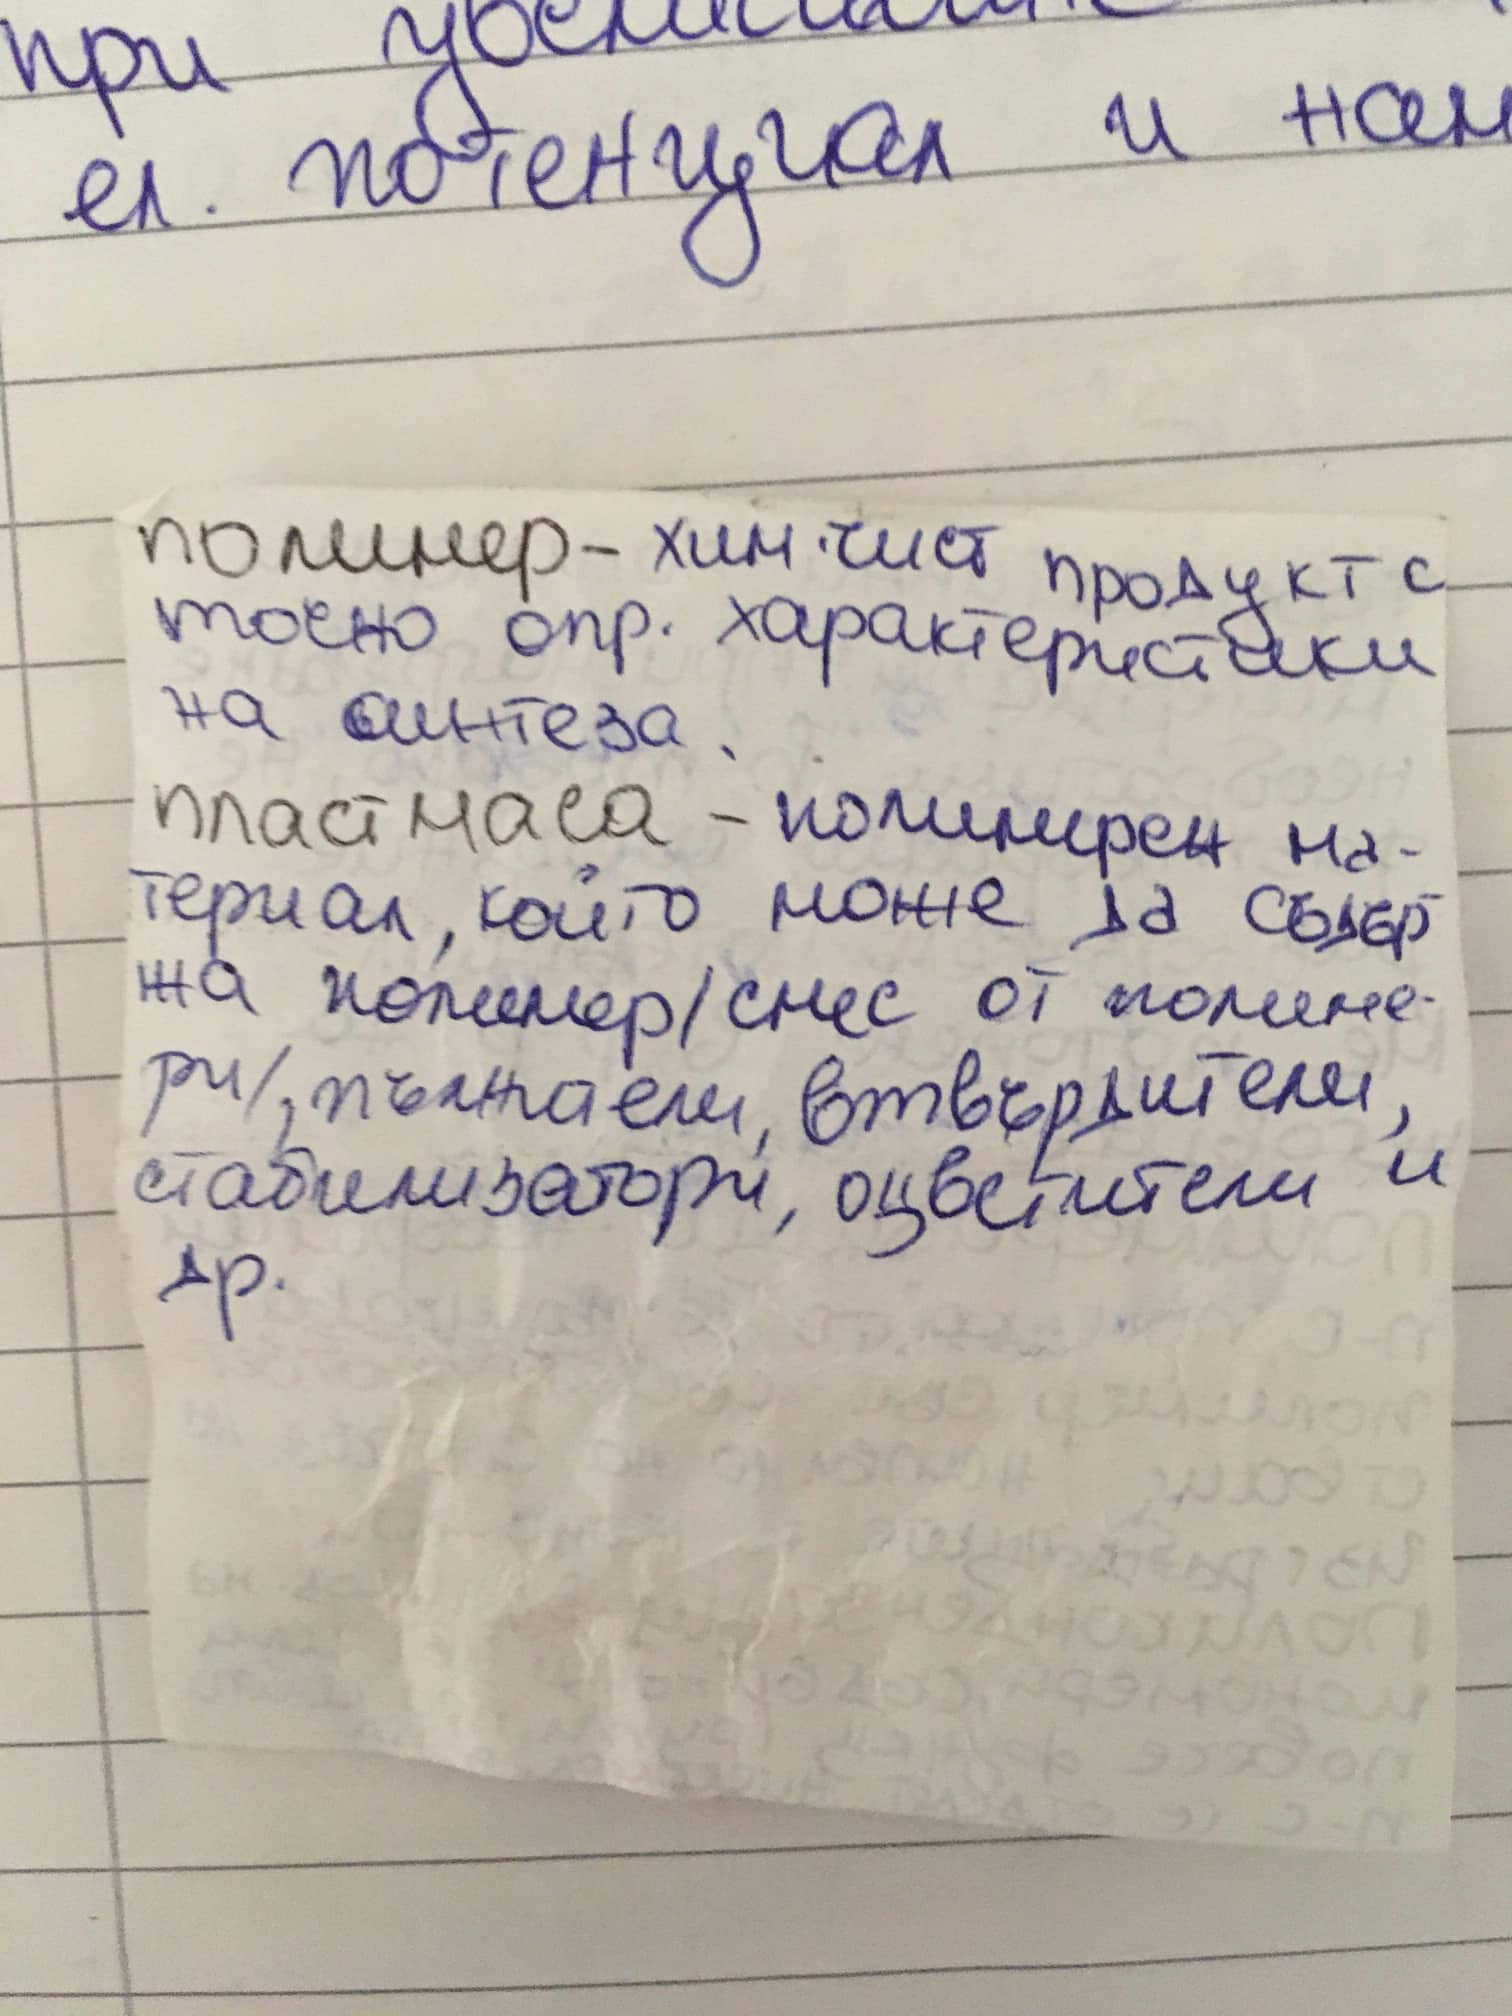 при
ел. потенциал и
полимер - хим. чист продукт с
точно опр. характеристики
на синтеза.
пластмаса - полимирен ма-
териал, който може да съдър
жа полимер/смес от полиме-
ри/, пълнаели, втвърдители,
стабилизатори, оцветители и
др.